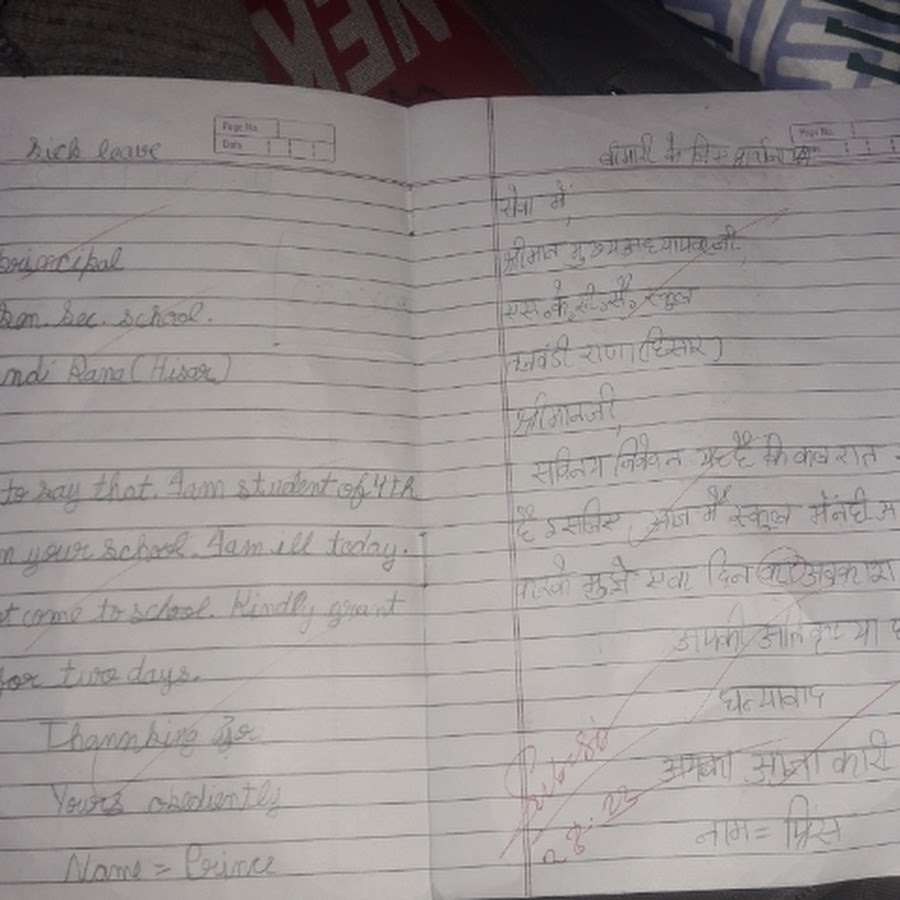 Page No.
Date
Sick leave
principal
Sen. Sec. school.
ndi Rana (Hisar)
to say that. I am student of 4th
n your school. I am ill today.
t come to school. Kindly grant
for two days.
Thannking for
Yours obediently
Name = Prince
Page No.
बीमारी के लिए प्रार्थना पत्र
सेवा में,
श्रीमान मुख्यअध्यापक जी,
एस. के. सी. सै. स्कूल
राणा (हिसार)
श्रीमानजी,
सविनय निवेदन यह है कि कल रात
है इसलिए, आज मैं स्कूल में नही आ
करके मुझे एक दिन का अवकाश
आपकी अति कृप्या
धन्यावाद
आपका आज्ञा कारी
नाम = प्रिंस